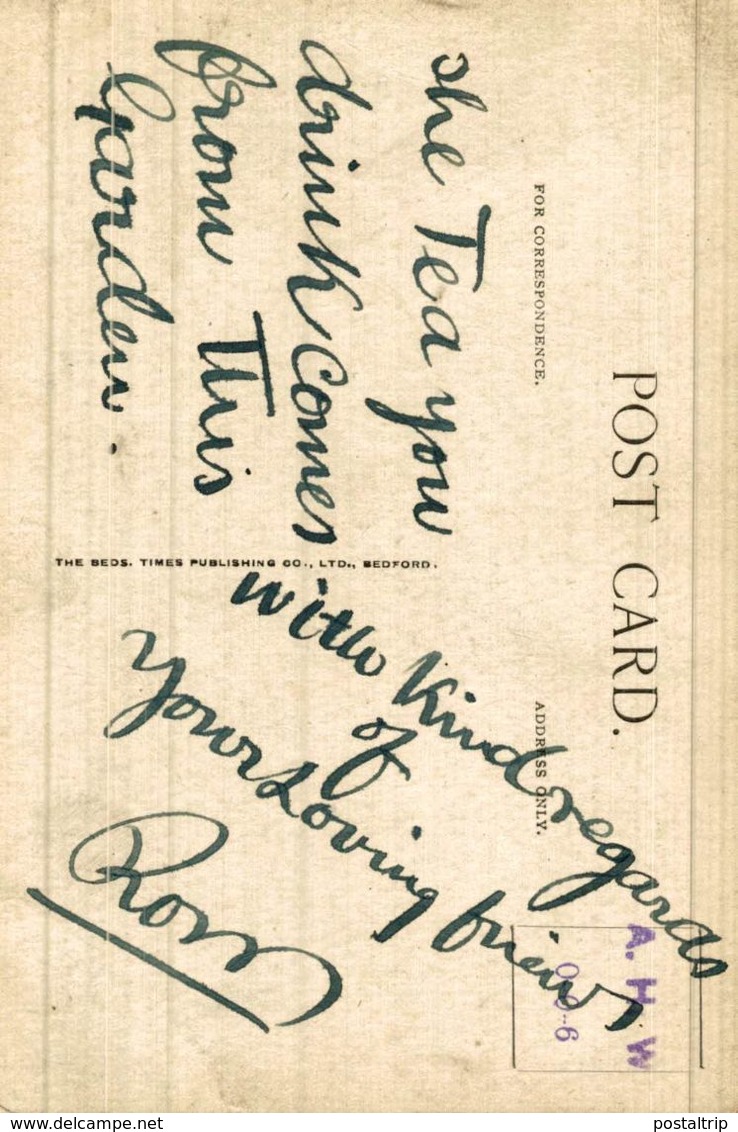 POST CARD.
FOR CORRESPONDENCE.
ADDRESS ONLY.
A. H. W
0-0-6
the Tea you
drink comes
from This
Garden.
THE BEDS. TIMES PUBLISHING CO., LTD., BEDFORD.
with Kind regards
of
your Loving friend
www.delcampe.net
postaltrip